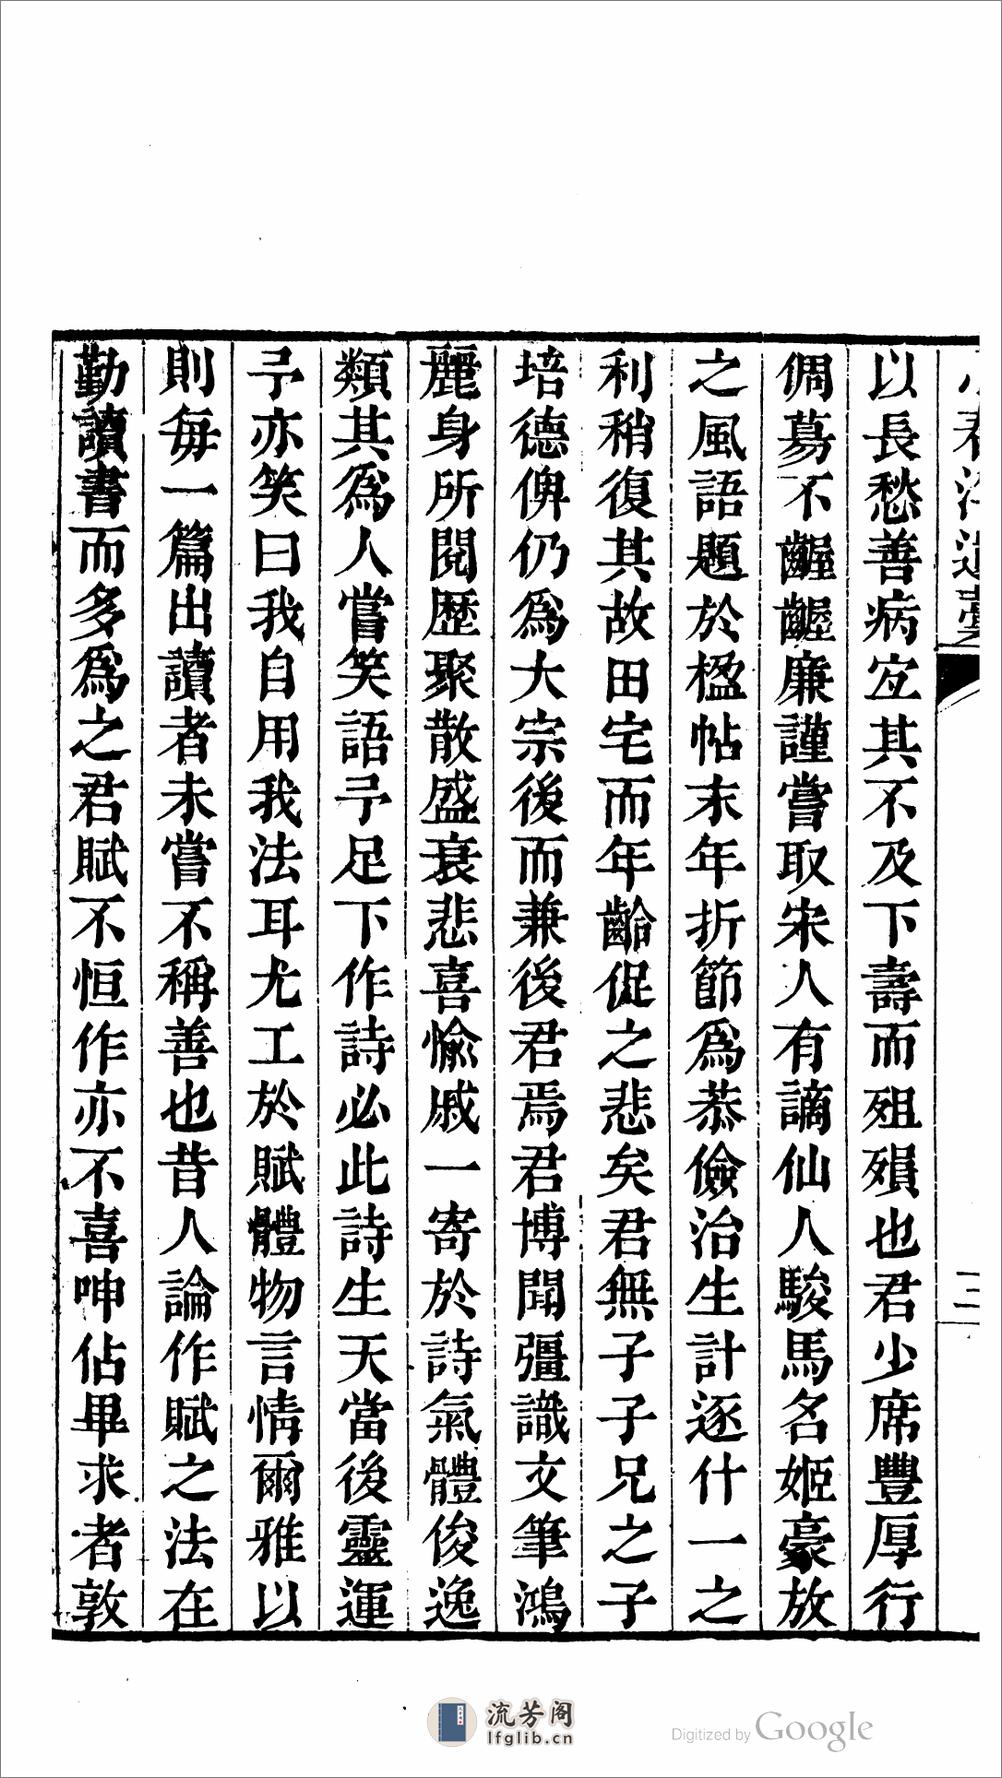 以長愁善病宐其不及下壽而殂殞也君少席豐厚行
倜蕩不齷齷廉謹嘗取宋人有謫仙人駿馬名姬豪放
之風語題於楹帖末年折節爲恭儉治生計逐什一之
利稍復其故田宅而年齡促之悲矣君無子子兄之子
培德俾仍爲大宗後而兼後君焉君博聞彊識文筆鴻
麗身所閱歷聚散盛衰悲喜愉戚一寄於詩氣體俊逸
類其爲人嘗笑語予足下作詩必此詩生天當後靈運
予亦笑曰我自用我法耳尤工於賦體物言情爾雅以
則每一篇出讀者未嘗不稱善也昔人論作賦之法在
勤讀書而多爲之君賦不恒作亦不喜呻佔畢求者敦
三
流芳阁
lfglib.cn
Digitized by Google